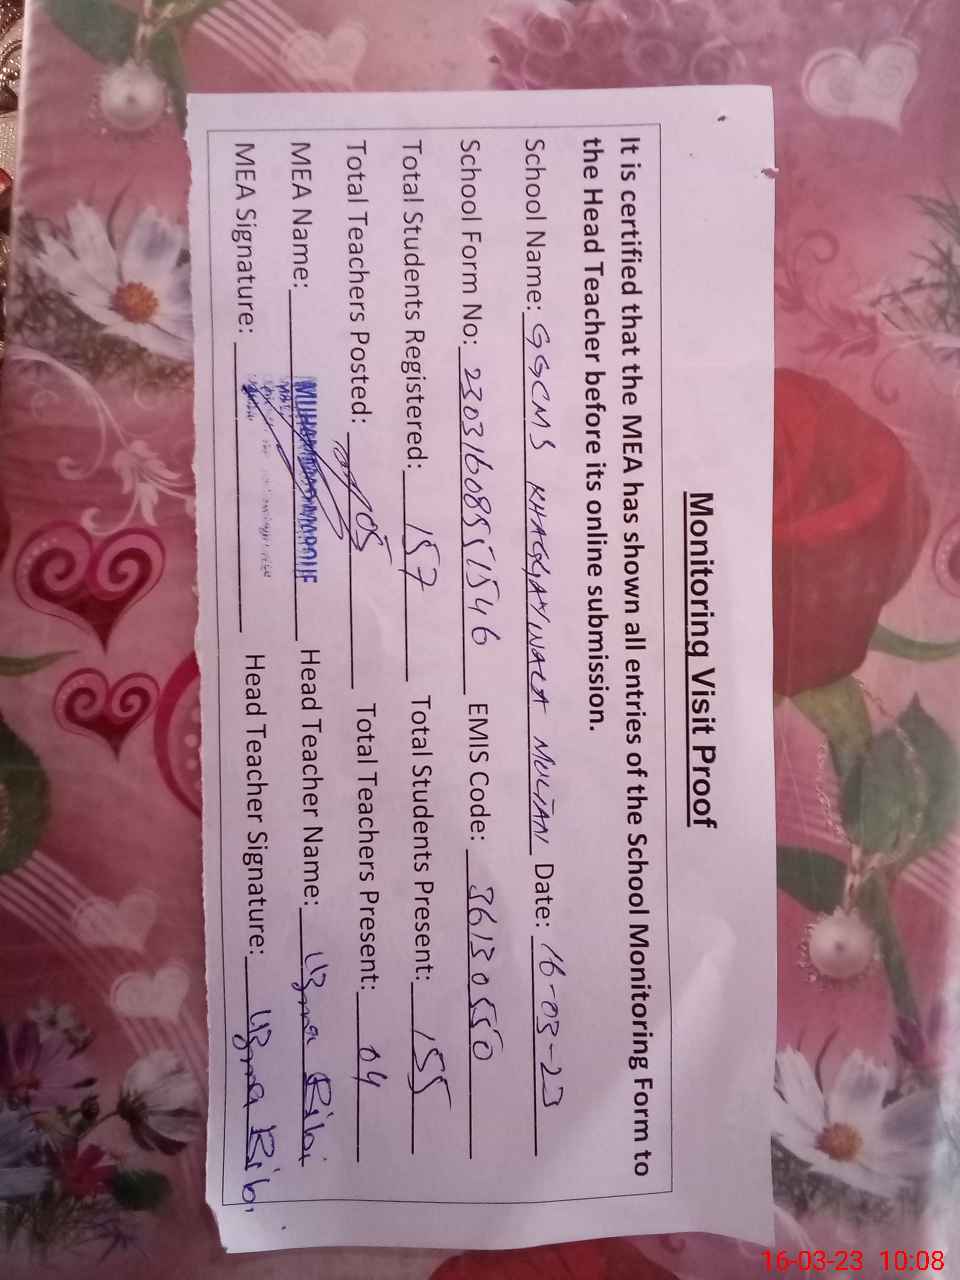 Monitoring Visit Proof
It is certified that the MEA has shown all entries of the School Monitoring Form to
the Head Teacher before its online submission.
School Name: GGCMS KHAGGAYWALA MULTAN Date: 16-03-23
School Form No: 23031608551546 EMIS Code: 36130550
Total Students Registered: 157 Total Students Present: 155
Total Teachers Posted: 05 Total Teachers Present: 04
MEA Name: MUHAMMAD Head Teacher Name: Uzma Bibi
MEA Signature: Head Teacher Signature: Uzma Bibi
16-03-23 10:08